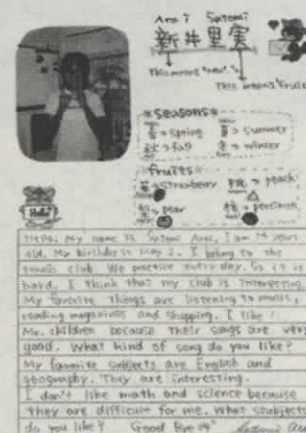 Arai Satomi
新井里実
This means "new".
This means "fruit"
*seasons*
春→spring 夏→summer
秋→fall 冬→winter
*fruits*
苺→strawberry 桃→peach
梨→pear 柿→persimmon
Hello!
Hello. My name is Satomi Arai. I am 14 years
old. My birthday is May 2. I belong to the
tennis club. We practice every day. So it is
hard. I think that my club is interesting.
My favorite things are listening to music,
reading magazines and shopping. I like
Mr. children because their songs are very
good. What kind of song do you like?
My favorite subjects are English and
geography. They are interesting.
I don't like math and science because
they are difficult for me. What subjects
do you like? Good Bye Satomi